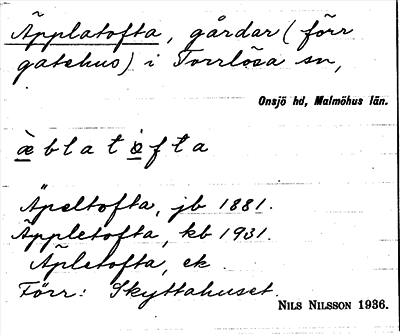 Äpplatofta, gårdar (förr
gatehus) i Torrlösa sn,
Onsjö hd, Malmöhus län.
æ̀blatòfta
Äpeltofta, jb 1881.
Äppletofta, kb 1931.
Äpletofta, ek
Förr: Skyttahuset.
NILS NILSSON 1936.